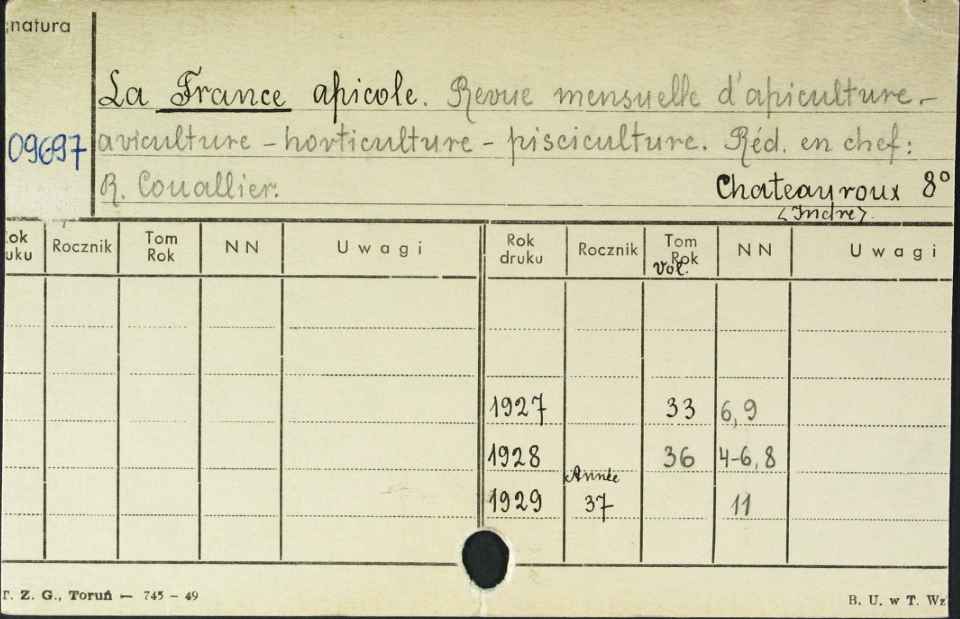 gnatura
La France apicole. Revue mensuelle d'apiculture -
09697 aviculture - horticulture - pisciculture. Réd. en chef:
R. Couallier. Chateauroux 8°
(Indre).
Rok druku Rocznik Tom Rok NN Uwagi Rok druku Rocznik Tom Rok NN Uwagi
Vol.
1927 33 6,9
1928 36 4-6,8
Année
1929 37 11
T. Z. G., Toruń — 745 - 49 B. U. w T. Wz